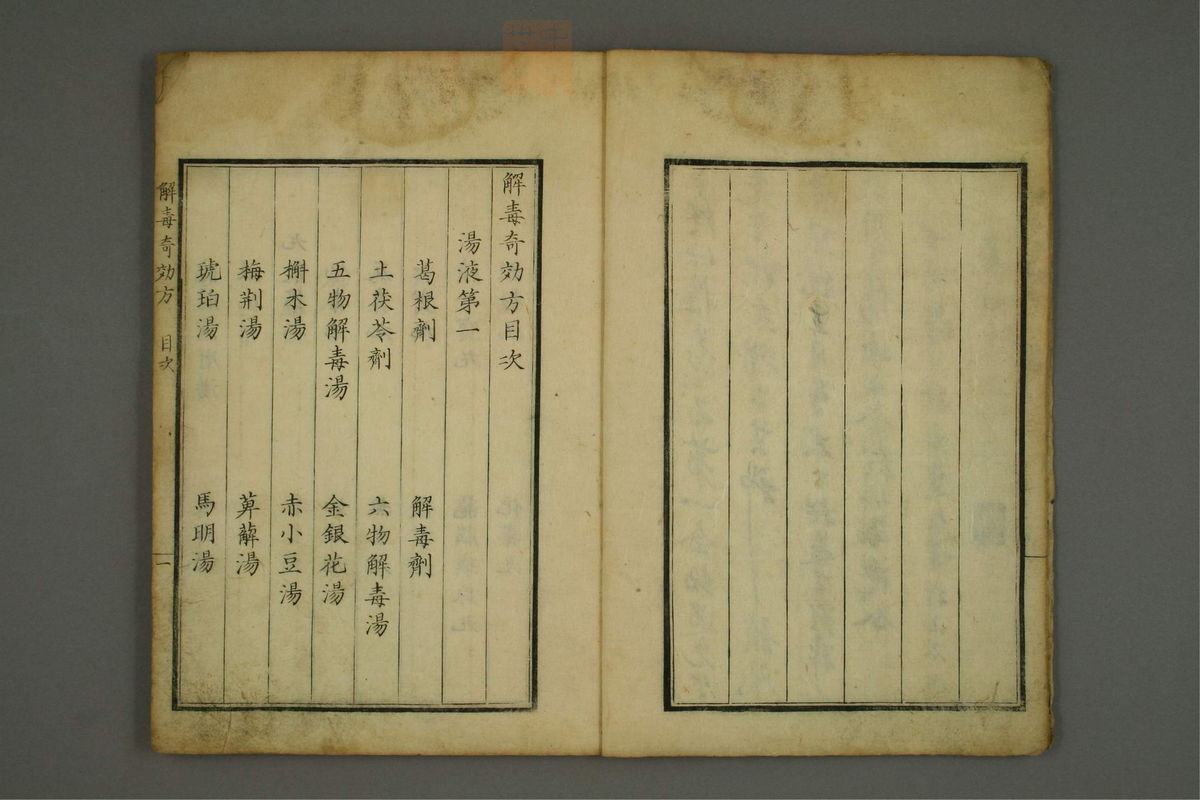 解毒奇効方目次
湯液第一
葛根劑
解毒劑
土茯苓劑
六物解毒湯
五物解毒湯
金銀花湯
槲木湯
赤小豆湯
梅荆湯
萆薢湯
琥珀湯
馬明湯
解毒奇効方
目次
一